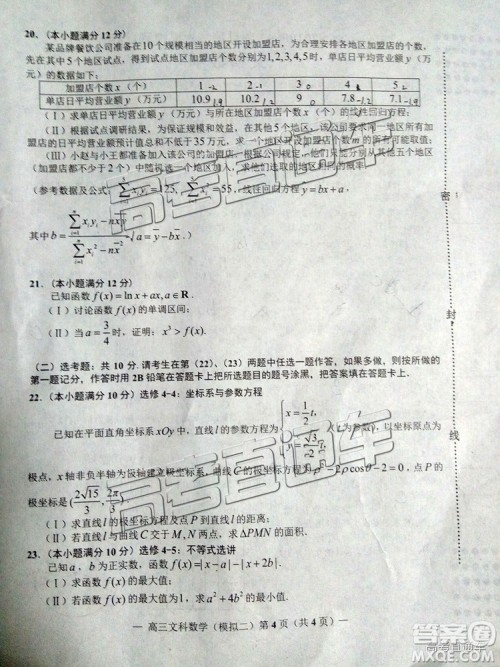 20.（本小题满分 12 分）
某品牌餐饮公司准备在10个规模相当的地区开设加盟店，为合理安排各地区加盟店的个数，
先在其中5个地区试点，得到试点店个数分别为1,2,3,4,5时，单店日平均营业额 y（万
元）的数据如下：
加盟店个数 x（个） 1 2 3 4 5
单店日平均营业额 y（万元） 10.9 10.2 9 7.8 7.1
（Ⅰ）求单店日平均营业额 y（万元）与所在地区加盟店个数 x（个）的线性回归方程；
（Ⅱ）根据试点调研结果，为保证规模和效益，该公司要求同一地区所有加
盟店的日平均营业额预计值总和不低于 35 万元，求一个地区开设加盟店个数 m 的所有可能取值；
（Ⅲ）小赵与小王都准备加入该公司的加盟店，但根据公司规定，他们只能分别从其他五个地区
（加盟店都不少于 2 个）中随机选一个地区加入，求他们选取的地区相同的概率.
（参考数据及公式：∑xᵢyᵢ=125，∑xᵢ²=55，线性回归方程 y=bx+a，
其中 b=(∑xᵢyᵢ−nx̄ȳ)/(∑xᵢ²−nx̄²)，a=ȳ−bx̄.）
21.（本小题满分 12 分）
已知函数 f(x)=ln x+ax, a∈R.
（Ⅰ）讨论函数 f(x) 的单调区间；
（Ⅱ）当 a=3/4 时，证明：x³>f(x).
（二）选考题：共 10 分. 请考生在第（22）、（23）两题中任选一题作答，如果多做，则按所做的
第一题记分，作答时用 2B 铅笔在答题卡上把所选题目的题号涂黑.
22.（本小题满分 10 分）选修 4-4：坐标系与参数方程
已知在平面直角坐标系 xOy 中，直线 l 的参数方程为 （t 为参数），以坐标原点为
极点，x 轴非负半轴为极轴建立极坐标系，曲线 C 的极坐标方程为 ρ²−2ρcosθ−2=0，点 P 的
极坐标是 (2√15/3, 2π/3).
（Ⅰ）求直线 l 的极坐标方程及点 P 到直线 l 的距离；
（Ⅱ）若直线 l 与曲线 C 交于 M, N 两点，求 △PMN 的面积.
23.（本小题满分 10 分）选修 4-5：不等式选讲
已知 a，b 为正实数，函数 f(x)=|x−a|−|x+2b|.
（Ⅰ）求函数 f(x) 的最大值；
（Ⅱ）若函数 f(x) 的最大值为 1，求 a²+4b² 的最小值.
— 高三文科数学（模拟二）第 4 页（共 4 页）—
密
封
线
高考直通车